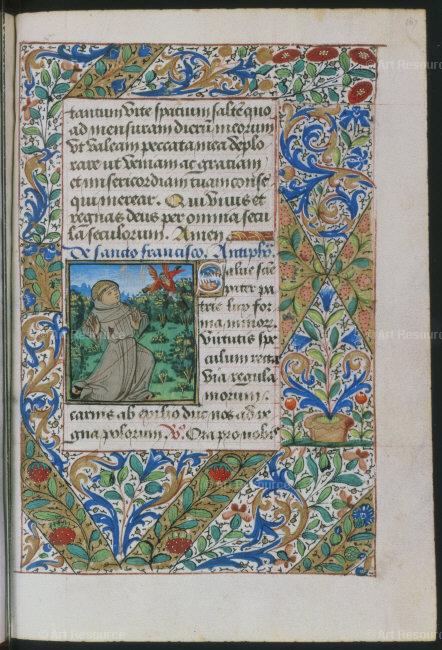 tantum vite spatium salte quo
ad mensuram dierū meorum
vt valeam peccata mea deplo
rare vt veniam ac gratiam
et misericordiam tuam conse
qui merear. Qui viuis et
regnas deus per omnia secu
la seculorum. Amen
De sancto francisco. Antiphō.
Salue sāc
pater pa
trie lux for
ma minor.
Virtutis spe
culum recti
via regula
morum.
carnis ab exilio duc nos ad re
gna polorum. V. Ora pro nobis
Art Resource